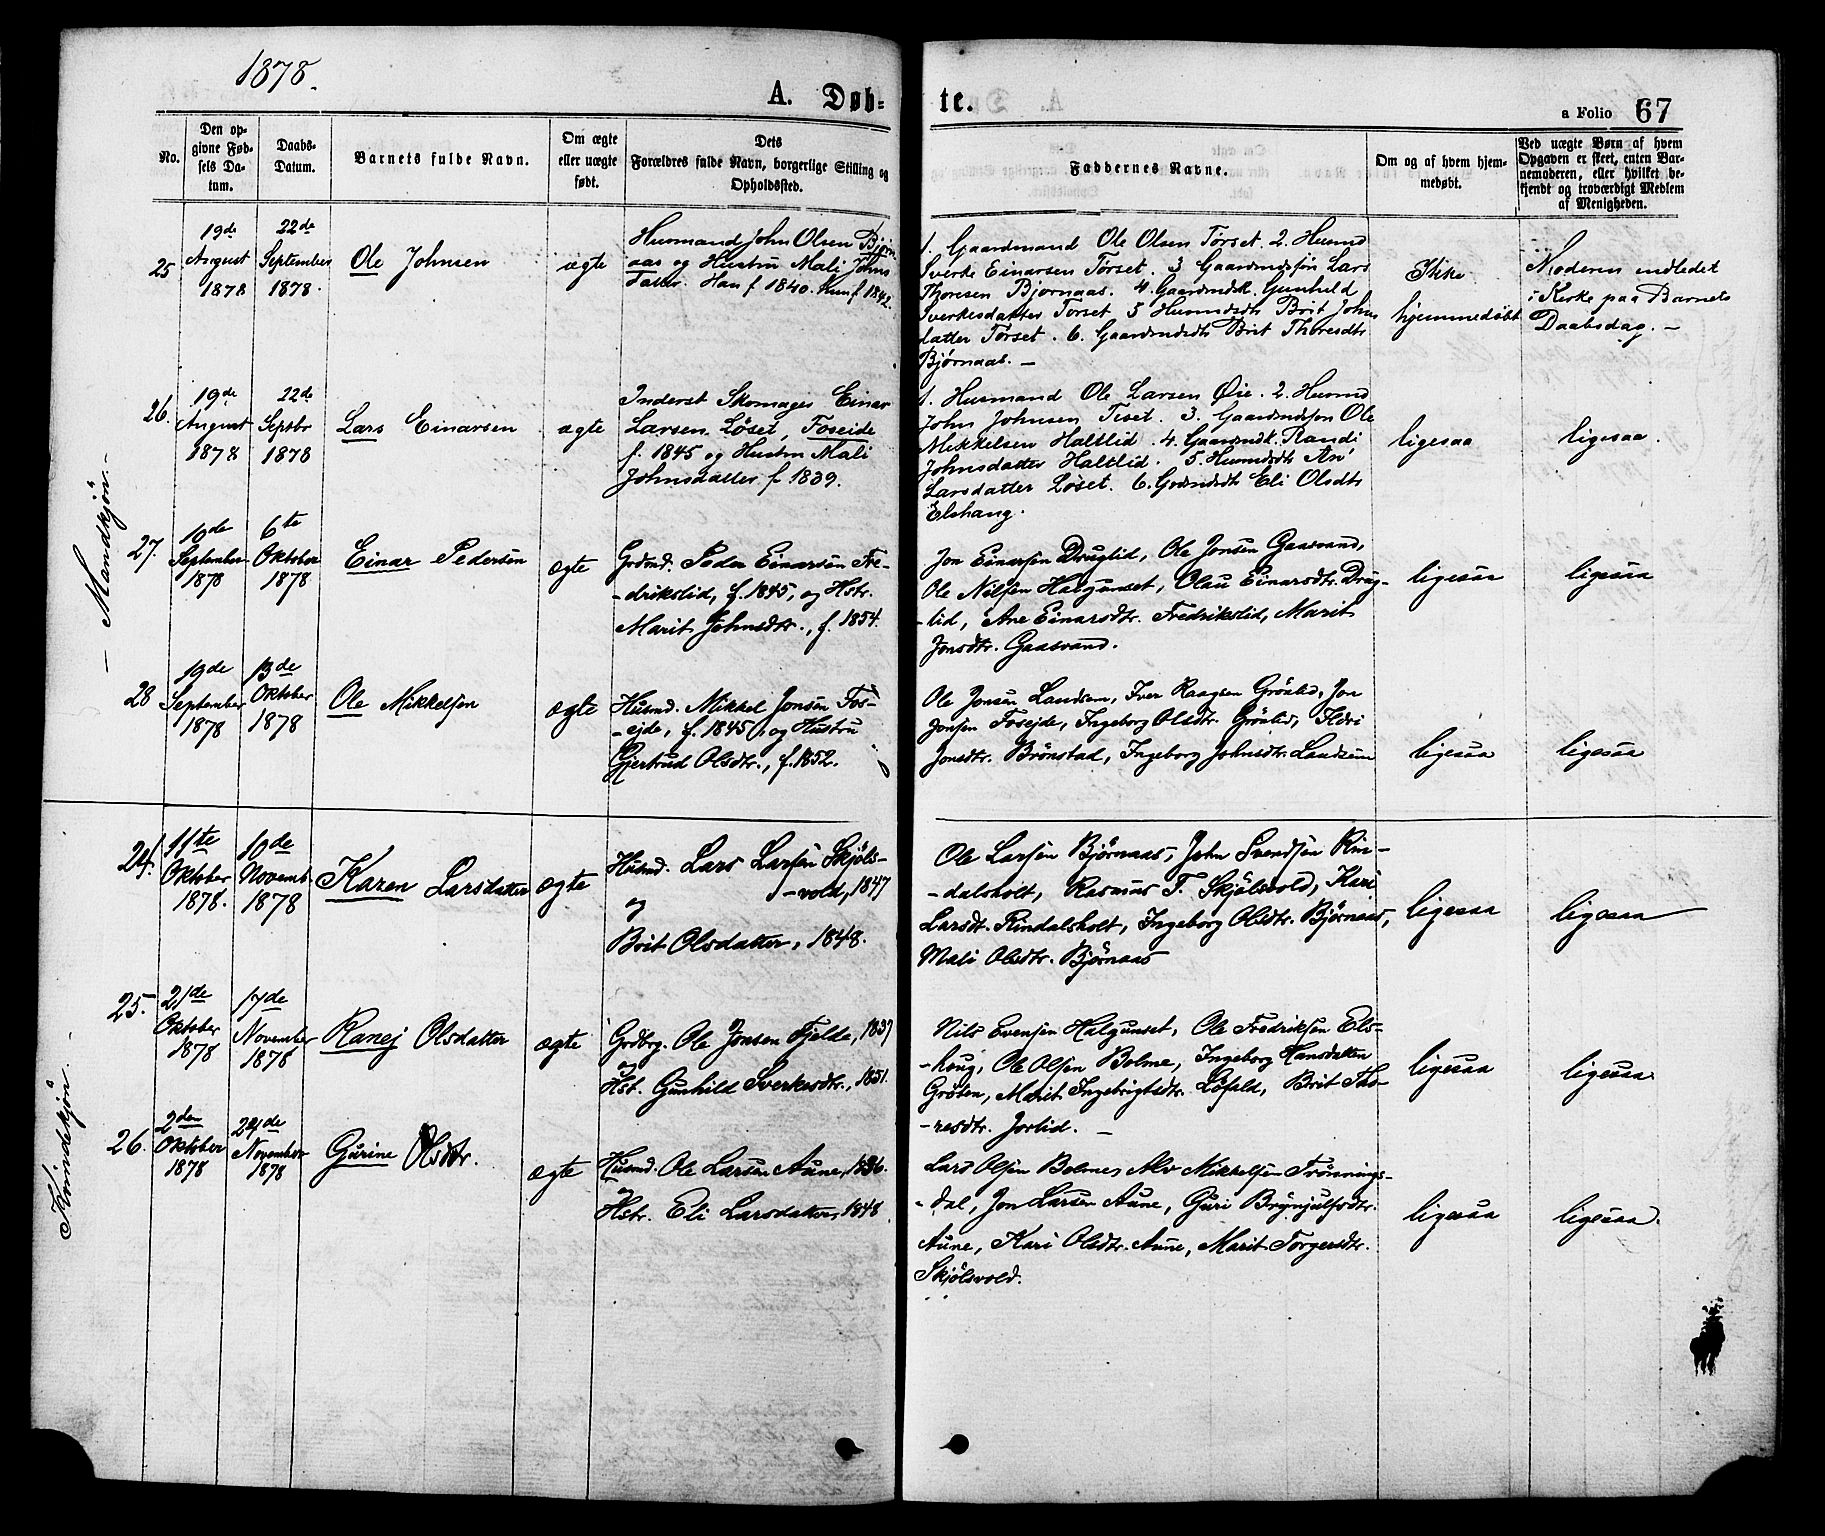 1878.
A. Døb-
te.
a Folio 67
No.
Den op-
givne Fød-
sels Da-
tum.
Daabs-
Datum.
Barnets fulde Navn.
Om ægte
eller uægte
født.
Dets
Forældres fulde Navn, borgerlige Stilling og
Opholdssted.
Faddernes Navne.
Om og af hvem hjem-
medøbt.
Ved uægte Børn af hvem
Opgaven er skeet, enten Bar-
nemoderen, eller hvilket be-
kjendt og troværdigt Medlem
af Menigheden.
- Mandkjön. -
25
19de
August
1878
22de
September
1878.
Ole Johnsen
ægte
Husmand John Olsen Björn
aas og Hustru Mali Johns
datter. Han f 1840. Hun f 1842.
1. Gaardmand Ole Olsen Törset. 2. Husmd
Sverke Einarsen Törset. 3 Gaardmdsön Lars
Thoresen Bjørnaas. 4. Gaardmdsk. Gunhild
Sverkesdatter Törset 5 Husmdsdtr Brit Johns
datter Törset. 6. Gaardmdsdtr Brit Thoresdtr
Bjørnaas. -
Ikke
hjemmedøbt
Moderen indledet
i Kirke paa Barnets
Daabsdag. -
26.
19de
August
1878
22de
Septbr
1878
Lars Einarsen
ægte
Inderst Skomager Einar
Larsen Löset, Foseide
f. 1845 og Hustru Mali
Johnsdatter f 1839.
1. Husmand Ole Larsen Øie. 2. Husmd
John Johnsen Tiset. 3. Gaardmdsön Ole
Mikkelsen Haltlid. 4. Gaardmdk. Randi
Johnsdatter Haltlid. 5. Husmdsdtr An
Larsdatter Löset. 6. Grdmdsdtr Eli Olsdtr
Elshaug.
ligesaa
ligesaa.
27.
10de
September
1878
6te
Oktober
1878
Einar Pedersen
ægte
Grdmd. Peder Einarsen Fre-
-drikslid, f. 1845, og Hstr.
Marit Johnsdtr., f. 1854.
Jon Einarsen Druglid, Ole Jonsen Gaasvand,
Ole Nilsen Halgunset, Olau Einarsdtr. Drug-
-lid, Ane Einarsdtr. Fredrikslid, Marit
Jonsdtr. Gaasvand.
ligesaa
ligesaa
28
19de
September
1878
13de
Oktober
1878
Ole Mikkelsen
ægte
Husmd. Mikkel Jonsen Fos-
-ejde, f. 1845, og Hustru
Gjertrud Olsdtr., f. 1852.
Ole Jonsen Landsem, Iver Haagsen Grönlid, Jon
Jonsen Fosejde, Ingeborg Olsdtr. Grönlid, Ildri
Jonsdtr. Brönstad, Ingeborg Johnsdtr. Landsem
ligesaa
ligesaa
Kvindekjön.
24.
11te
Oktober
1878.
10de
Novemb.
1878
Karen Larsdatter
ægte
Husmd. Lars Larsen Skjöls-
-vold, 1847
og
Brit Olsdatter, 1848.
Ole Larsen Bjørnaas, John Svendsen Rin-
-dalsholt, Rasmus T. Skjölsvold, Kari
Larsdt. Rindalsholt, Ingeborg Olsdtr. Bjørnaas,
Mali Olsdtr. Bjørnaas
ligesaa
ligesaa
25.
21de
Oktober
1878
17de
November
1878
Ranej Olsdatter
ægte
Grdbrg. Ole Jonsen Fjelde, 1837
og
Hst. Gunhild Sverkesdtr., 1851.
Nils Evensen Halgunset, Ole Fredriksen Els-
-haug, Ole Olsen Bolme, Ingeborg Hansdatter
Gröten, Marit Ingebrigtsdtr. Löfald, Brit Tho-
-resdtr. Jorlid. -
ligesaa
ligesaa
26.
2den
Oktober
1878
24de
November
1878
Gurine Olsdtr.
ægte
Husmd. Ole Larsen Aune, 1836.
og
Hstr. Eli Larsdatter, 1848
Lars Olsen Bolme, Alv Mikkelsen Trönnings-
-dal, Jon Larsen Aune, Guri Brynjulfsdtr.
Aune, Kari Olsdtr. Aune, Marit Torgersdtr.
Skjölsvold.
ligesaa
ligesaa.